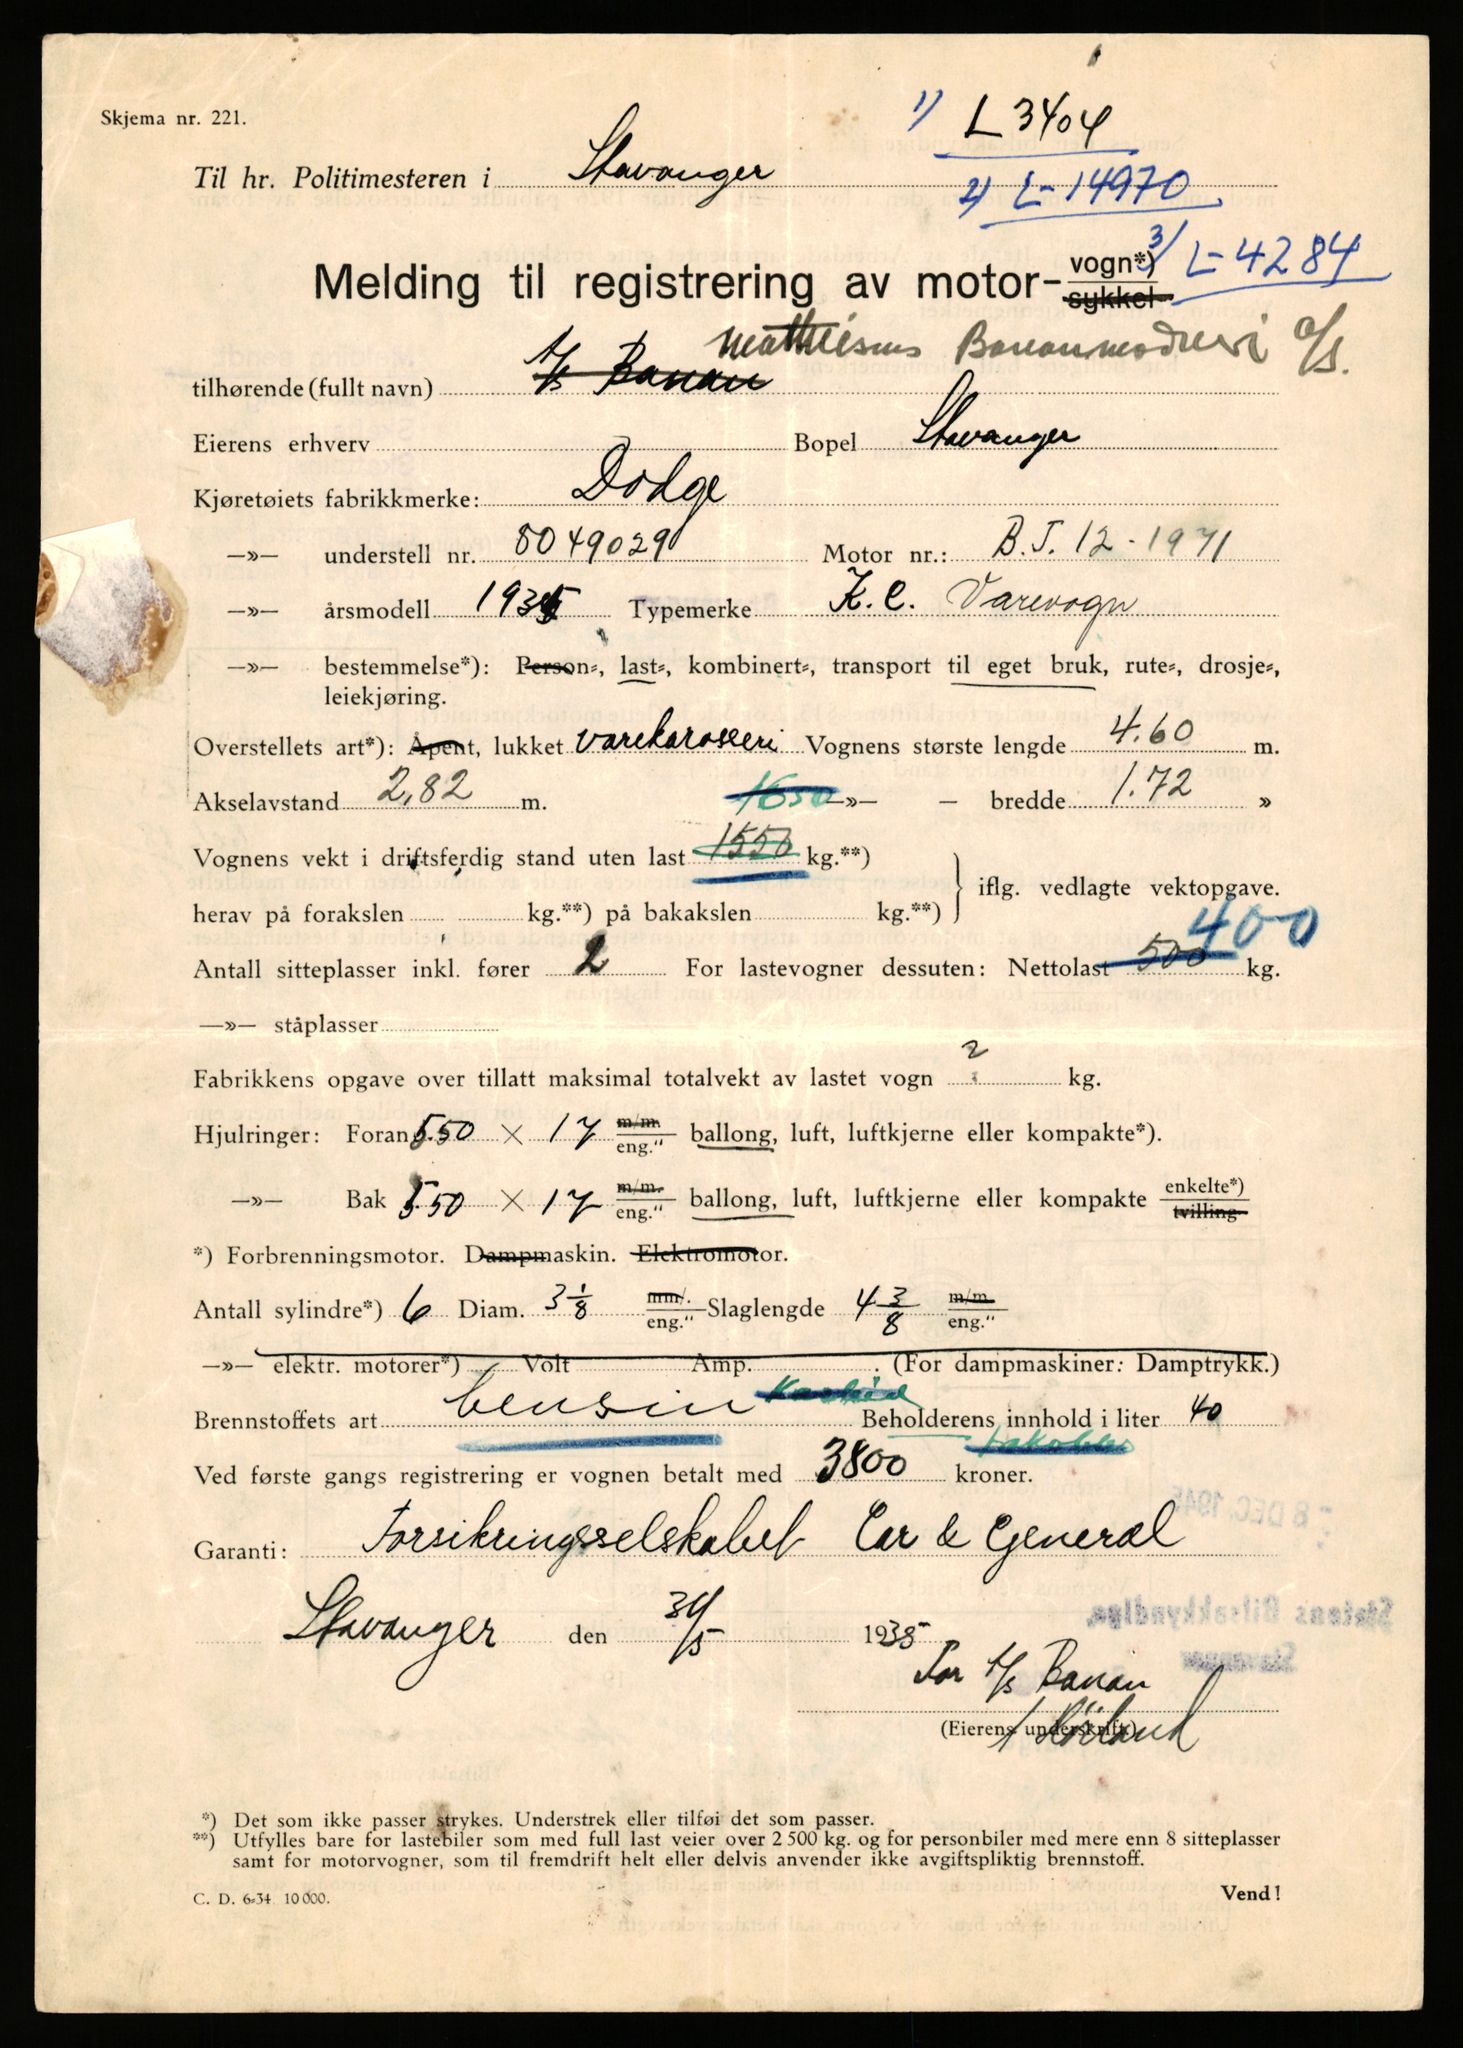 Skjema nr. 221.
1) L 3404
Til hr. Politimesteren i Stavanger
2) L-14970
3/ L-4284
Melding til registrering av motor- vogn*)
sykkel
Bananmodneri A/S.
tilhørende (fullt navn) A/S Banan
Eierens erhverv Bopel Stavanger
Kjøretøiets fabrikkmerke: Dodge
—»— understell nr. 8049029 Motor nr.: B.T. 12-1971
—»— årsmodell 1935 Typemerke K.C. Varevogn
—»— bestemmelse*): Person-, last-, kombinert-, transport til eget bruk, rute-, drosje-,
leiekjøring.
Overstellets art*): Åpent, lukket varekarosseri Vognens største lengde 4.60 m.
Akselavstand 2,82 m. 1650 —»— — bredde 1.72 »
Vognens vekt i driftsferdig stand uten last 1550 kg.**)
iflg. vedlagte vektopgave.
herav på forakslen kg.**) på bakakslen kg.**)
400
Antall sitteplasser inkl. fører 2 For lastevogner dessuten: Nettolast 500 kg.
—»— ståplasser
Fabrikkens opgave over tillatt maksimal totalvekt av lastet vogn ? kg.
Hjulringer: Foran 5.50 × 17 m/m. eng." ballong, luft, luftkjerne eller kompakte*).
—»— Bak 5.50 × 17 m/m. eng." ballong, luft, luftkjerne eller kompakte enkelte*) tvilling
*) Forbrenningsmotor. Dampmaskin. Elektromotor.
Antall sylindre*) 6 Diam. 3 1/8 mm/. eng." Slaglengde 4 3/8 m/m. eng."
—»— elektr. motorer*) Volt Amp. . (For dampmaskiner: Damptrykk.)
Brennstoffets art bensin Beholderens innhold i liter 40
Ved første gangs registrering er vognen betalt med 3800 kroner.
Garanti: Forsikringsselskabet Car & General
Stavanger den 31/5 1935
For A/S Banan
(Eierens underskrift)
*) Det som ikke passer strykes. Understrek eller tilføi det som passer.
**) Utfylles bare for lastebiler som med full last veier over 2 500 kg. og for personbiler med mere enn 8 sitteplasser
samt for motorvogner, som til fremdrift helt eller delvis anvender ikke avgiftspliktig brennstoff.
C. D. 6-34 10 000.
Vend!